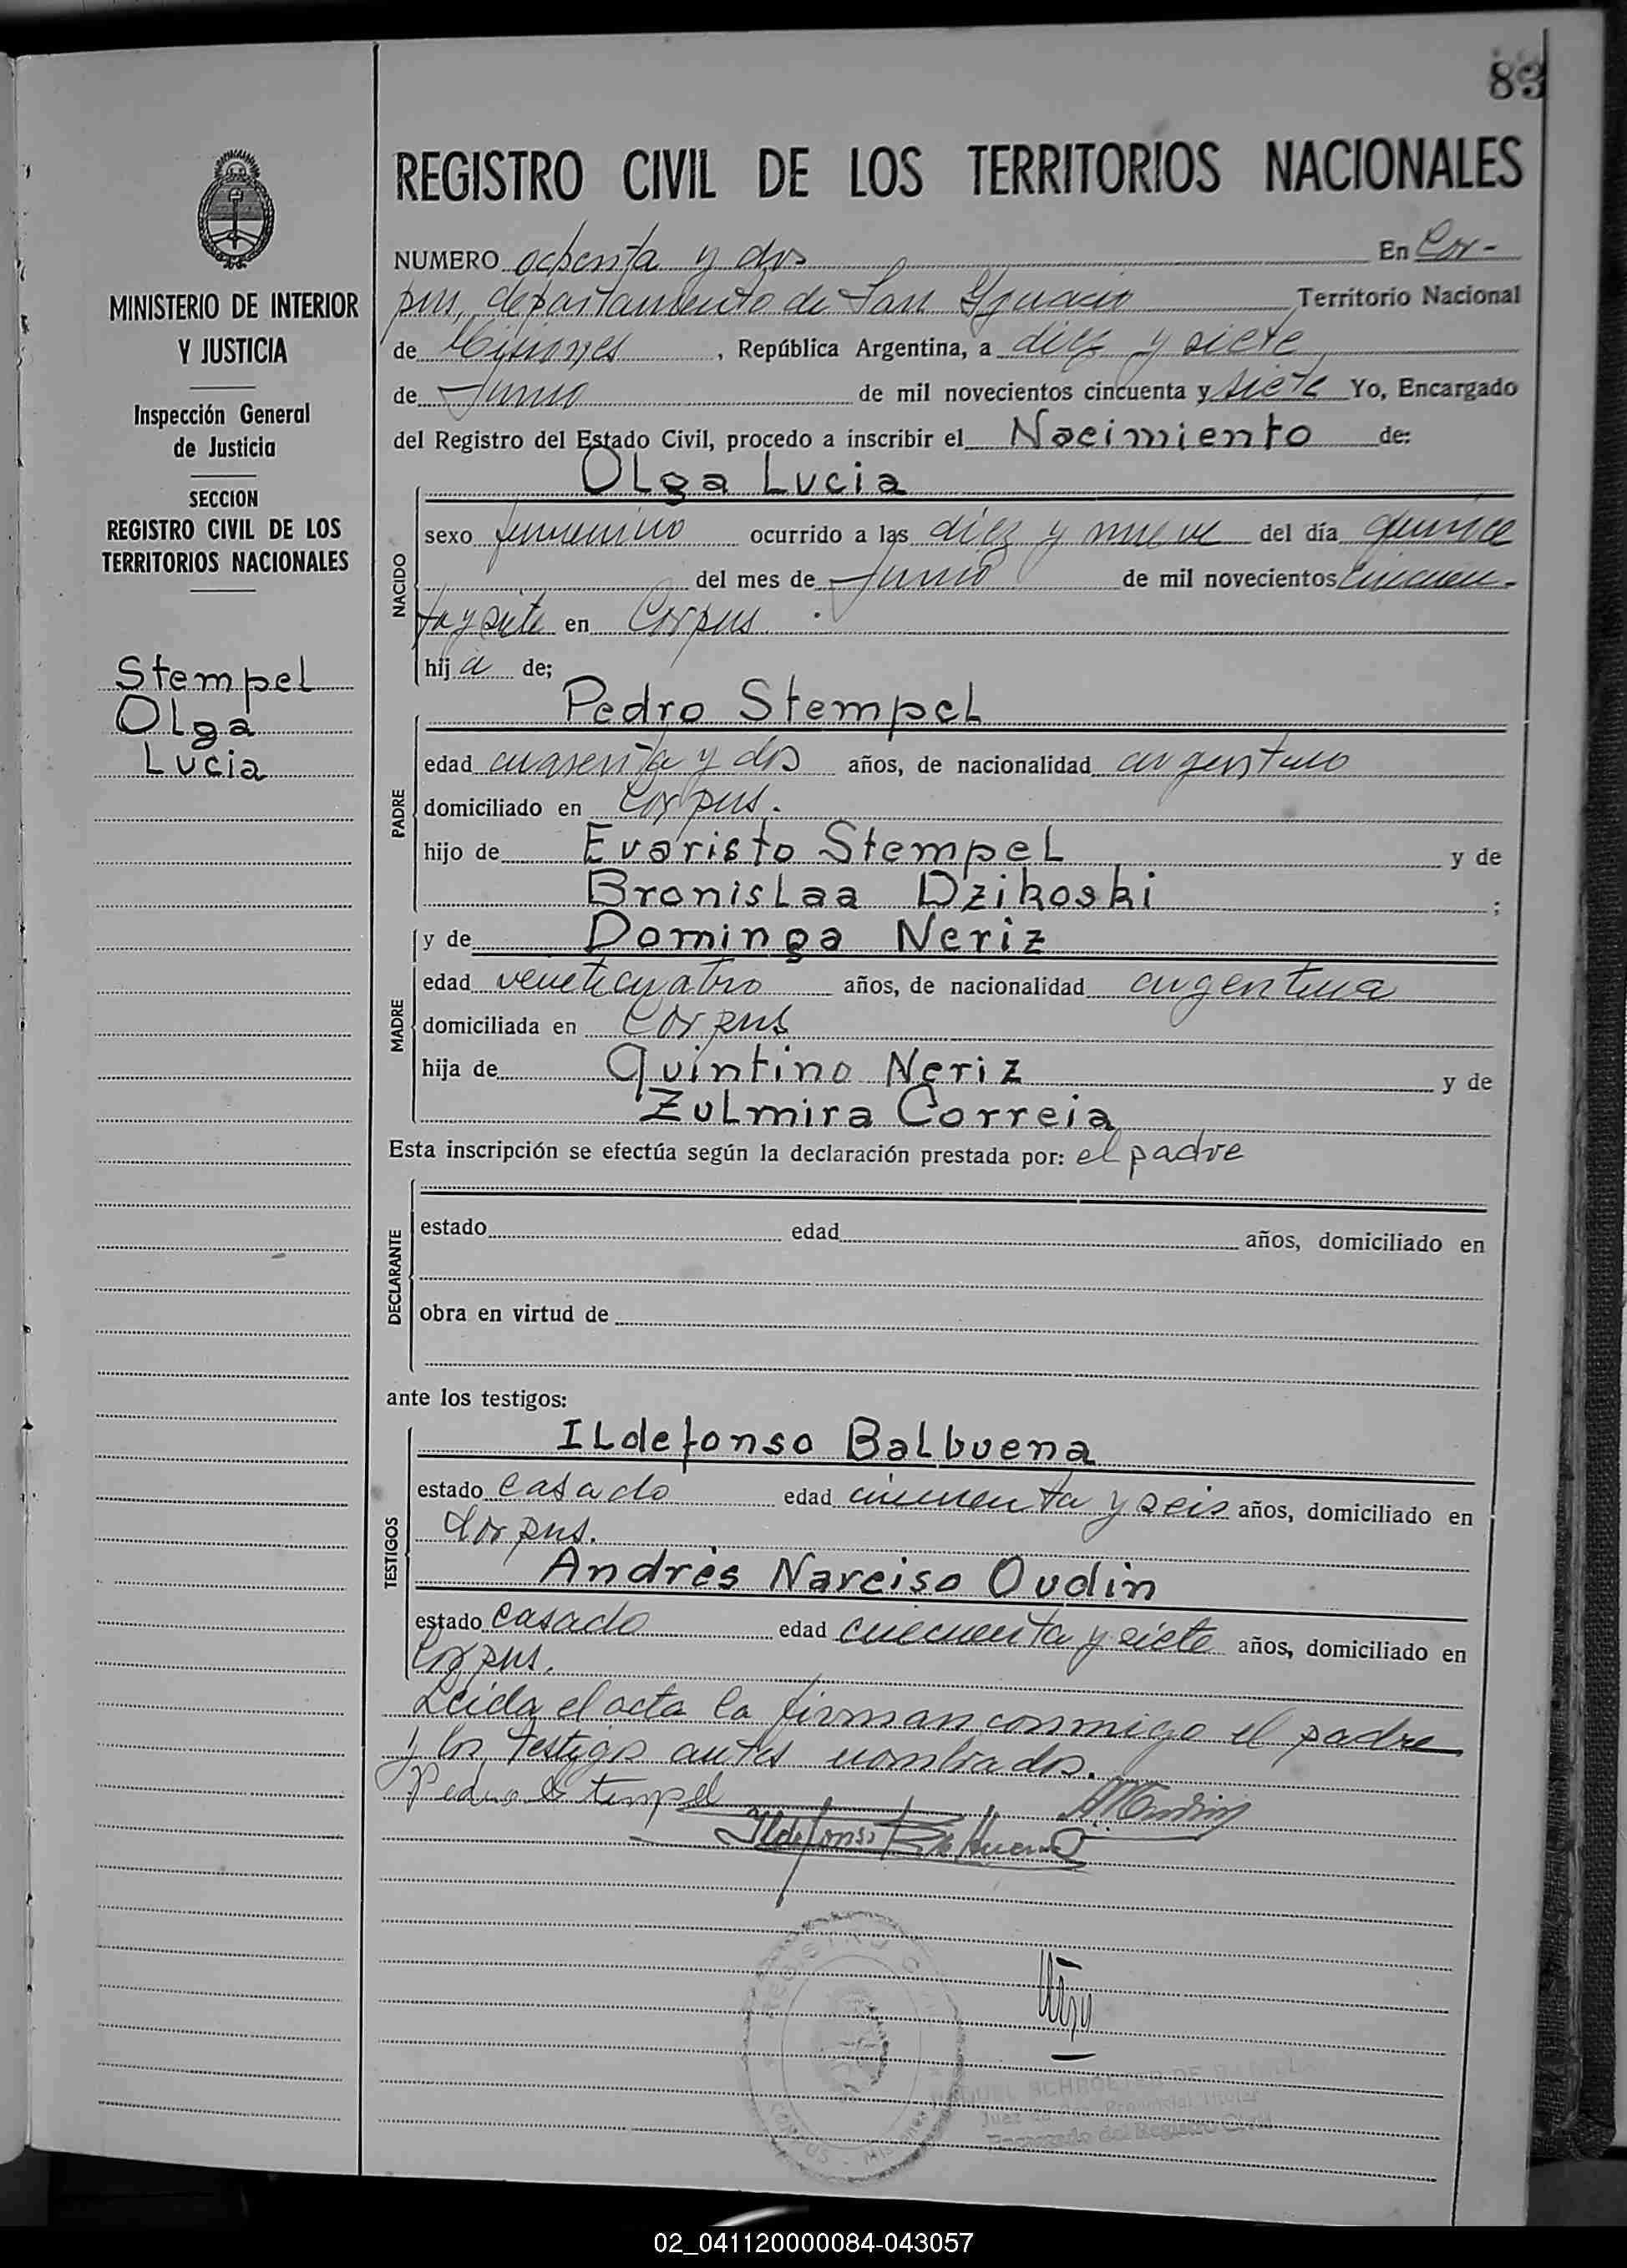 83
REGISTRO CIVIL DE LOS TERRITORIOS NACIONALES
MINISTERIO DE INTERIOR
Y JUSTICIA
Inspección General
de Justicia
SECCION
REGISTRO CIVIL DE LOS
TERRITORIOS NACIONALES
Stempel
Olga
Lucia
NUMERO ochenta y dos En Cor-
pus, departamento de San Ygnacio Territorio Nacional
de Misiones, República Argentina, a diez y siete
de Junio de mil novecientos cincuenta y siete Yo, Encargado
del Registro del Estado Civil, procedo a inscribir el Nacimiento de:
Olga Lucia
NACIDO
sexo femenino ocurrido a las diez y nueve del día quince
del mes de Junio de mil novecientos cincuen-
ta y siete en Corpus.
hija de;
Pedro Stempel
PADRE
edad cuarenta y dos años, de nacionalidad argentino
domiciliado en Corpus.
hijo de Evaristo Stempel y de
Bronislaa Dzikoski ;
y de Dominga Neriz
MADRE
edad veinticuatro años, de nacionalidad argentina
domiciliada en Corpus
hija de Quintino Neriz y de
Zulmira Correia
Esta inscripción se efectúa según la declaración prestada por: el padre
DECLARANTE
estado edad años, domiciliado en
obra en virtud de
ante los testigos:
Ildefonso Balbuena
TESTIGOS
estado casado edad cincuenta y seis años, domiciliado en
Corpus.
Andrès Narciso Oudin
estado casado edad cincuenta y siete años, domiciliado en
Corpus.
Leida el acta la firman conmigo el padre
y los testigos antes nombrados.
Pedro Stempel
Ildefonso Balbuena
REGISTRO CIVIL
CORPUS - MISIONES
Juez de Paz Provincial Titular
Encargado del Registro Civil
02_041120000084-043057